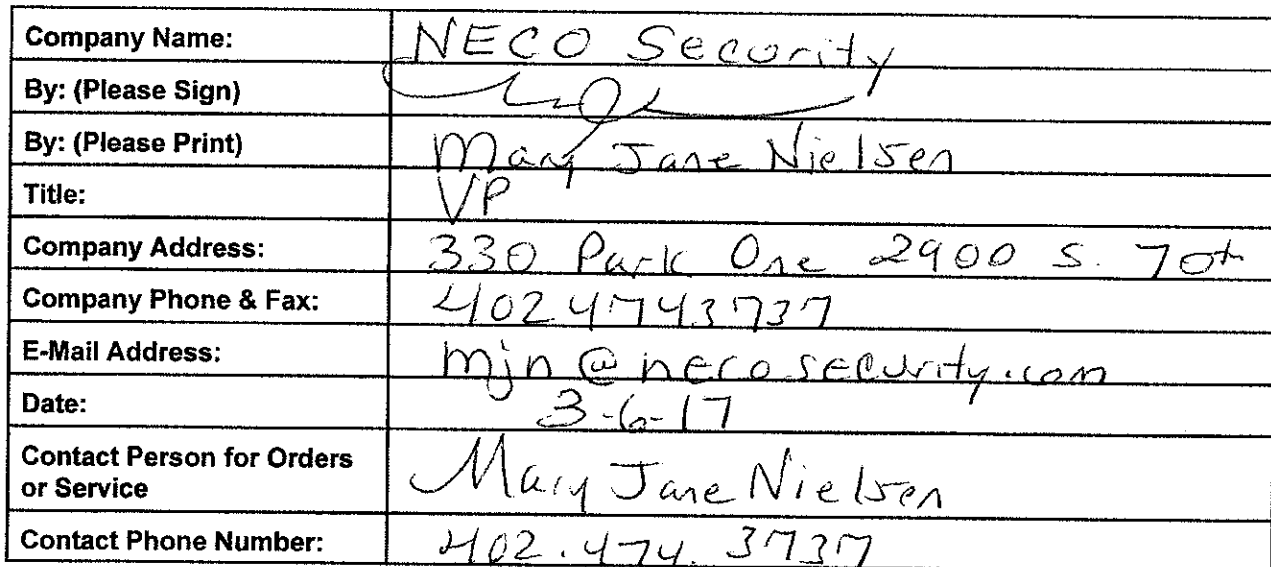 Company Name: NECO Security
By: (Please Sign)
By: (Please Print) Mary Jane Nielsen
Title: VP
Company Address: 330 Park One 2900 S. 70th
Company Phone & Fax: 4024743737
E-Mail Address: mjn@necosecurity.com
Date: 3-6-17
Contact Person for Orders
or Service Mary Jane Nielsen
Contact Phone Number: 402.474.3737